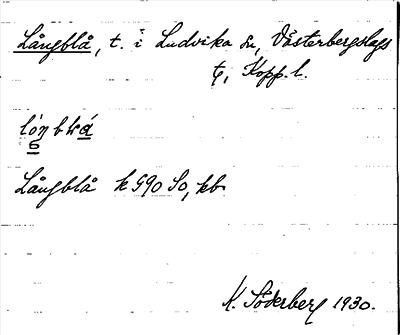 Långblå, t. i Ludvika sn, Västerbergslags
tg, Kopp. l.
Långblå k 590 So, kb
K. Söderberg 1930.